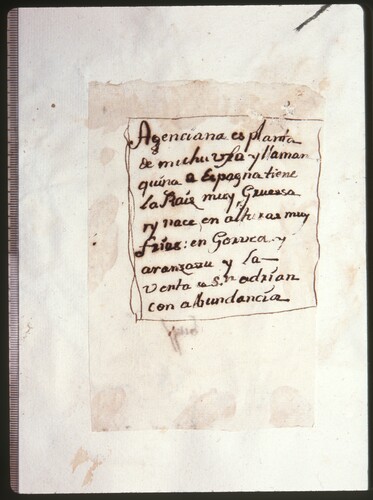 Agenciana es planta
de mucha vsa y llaman
quina a Espagna tiene
la Raiz muy Gruessa
ry nace, en alturas muy
frias: en Gorvea y
aranzazu y la
venta a S.n adrian
con abundancia